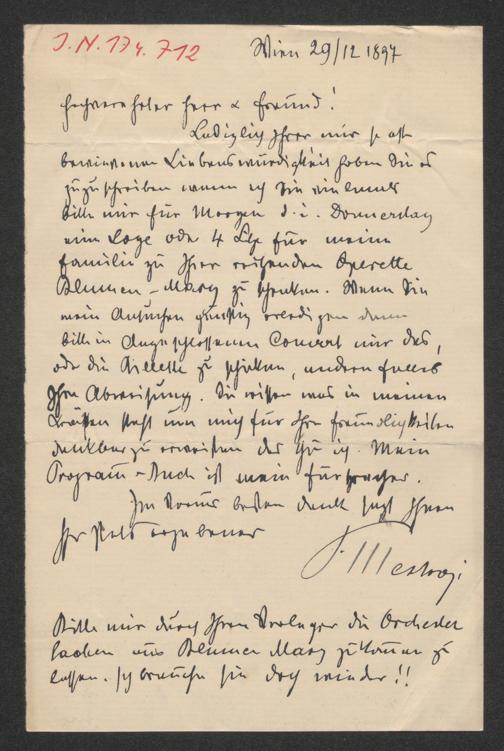 J.N. 174.712
Wien 29/12 1897
Hochverehrter Herr & Freund!
Lediglich Ihrer mir so oft
bewiesenen Liebenswürdigkeit haben Sie es
zuzuschreiben wenn ich Sie
bitte mir für Morgen d. i. Donnerstag
eine Loge oder 4 Sitze für meine
Familie zu Ihrer reizenden Operette
Blumen-Mary zu schenken. Wenn Sie
mein Ansuchen günstig erledigen dann
bitte in Angeschlossenem Couvert mir das,
oder die Billette zu schicken, andern falls
Ihre Abweisung. Sie wissen was in meinen
Kräften steht um mich für Ihre Freundlichkeiten
dankbar zu erweisen das thu ich. Mein
Programm-Buch ist mein Fürsprecher.
Im Voraus besten Dank sagt Ihnen
Ihr stets ergebener
Bitte mir durch Ihren Verleger die Orchester
sachen aus Blumen Mary zukommen zu
lassen. Ich brauche sie doch wieder!!